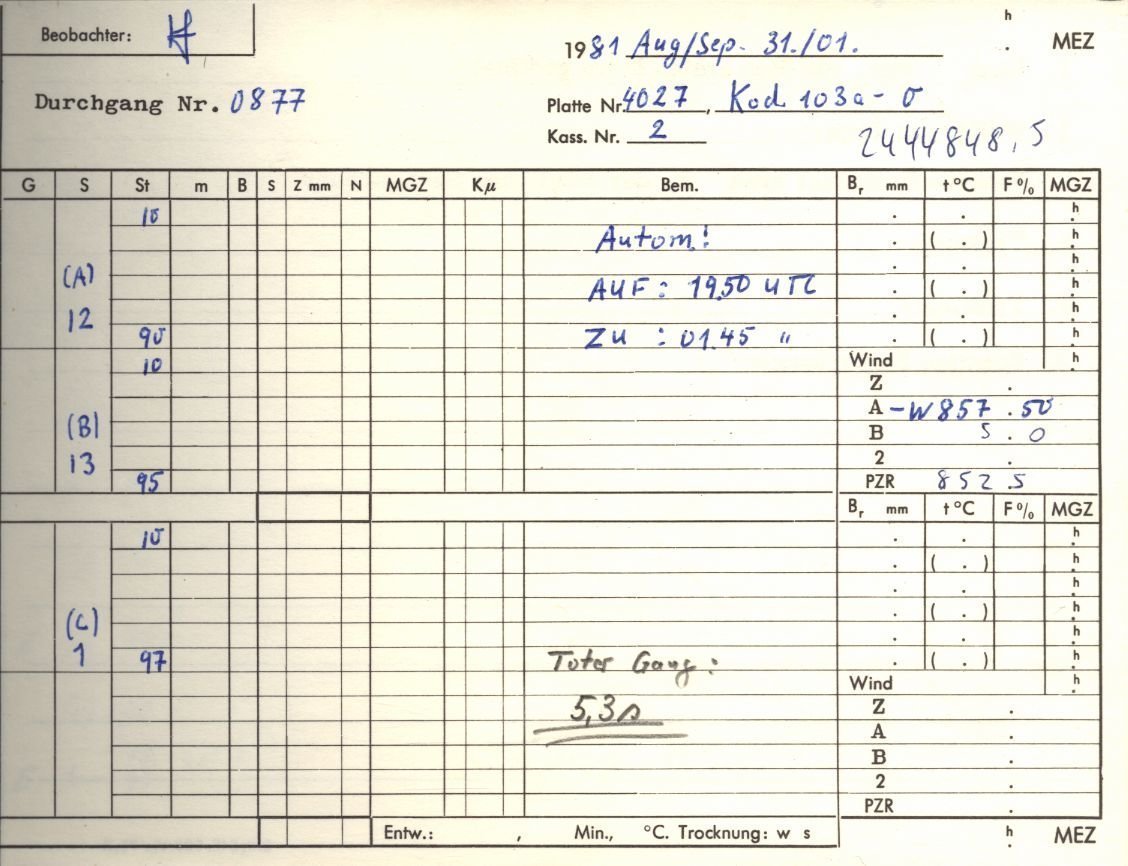 Beobachter:
h
1981 Aug/Sep. 31./01. . MEZ
Durchgang Nr. 0877
Platte Nr. 4027, Kod 103a-O
Kass. Nr. 2
2444848,5
G S St m B S Z mm N MGZ Kμ Bem. Br mm t °C F% MGZ
10 . . h
Autom! . ( . ) h
(A) . . h
AUF: 19.50 UTC . ( . ) h
12 . . h
90 ZU : 01.45 " . ( . ) h
10 Wind h
Z .
A -W857.50
(B) B 5.0
13 2 .
95 PZR 852.5
Br mm t °C F% MGZ
10 . . h
. ( . ) h
. . h
(C) . ( . ) h
. . h
1 97 Toter Gang: . ( . ) h
Wind h
5,3s Z .
A .
B .
2 .
PZR .
Entw.: , Min., °C. Trocknung: w s h . MEZ